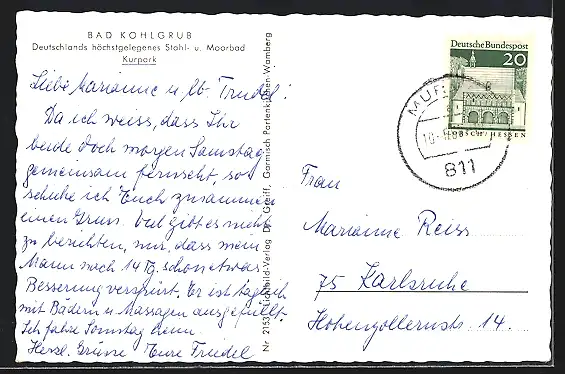 BAD KOHLGRUB
Deutschlands höchstgelegenes Stahl- u. Moorbad
Kurpark
Liebe Marianne u. lb. Trudel!
Da ich weiss, dass Ihr
beide doch morgen Samstag
gemeinsam fernseht, so
schicke ich Euch zusammen
einen Gruss. Viel gibt es nicht
zu berichten, nur, dass mein
Mann nach 14 Tg. schon etwas
Besserung verspürt. Er ist täglich
mit Bädern u. Massagen ausgefüllt.
Ich fahre Sonntag heim.
Herzl. Grüsse Eure Friedel
Nr. 2153 Lichtbild-Verlag Dr. Greiff, Garmisch Partenkirchen-Wamberg
Deutsche Bundespost
20
LORSCH/HESSEN
811
Frau
Marianne Reiss
75 Karlsruhe
Hohenzollernstr. 14.